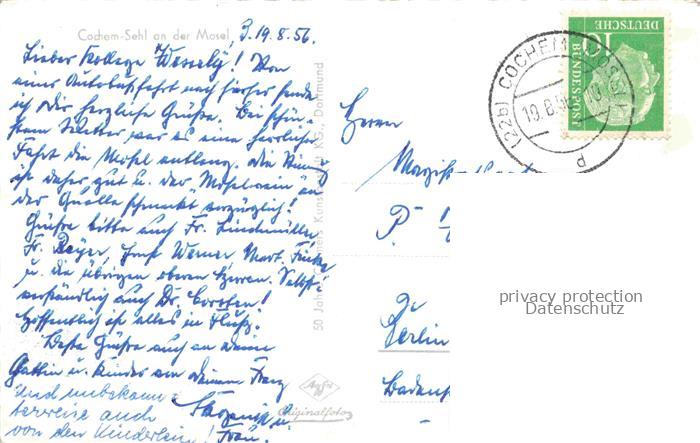 Cochem-Sehl an der Mosel
3.19.8.56.
Lieber Kollege Wessely! Von
einer Autobusfahrt nach hierher sende
ich Dir herzliche Grüße. Bei schön-
stem Wetter war es eine herrliche
Fahrt die Mosel entlang. Die
ist daher gut u. der Moselwein an
der Quelle schmeckt vorzüglich!
Grüße bitte auch Fr. Lindmüller
Fr. Beyer, Werner,
u. die übrigen oberen Herren. Selbst-
verständlich auch Dr. Corsten!
Hoffentlich ist alles in Fluß.
Beste Grüße auch an Deine
Gattin u. Kinder von Deinem Franz
und unbekann-
terweise auch u.
von den Kinderlein! Frau.
50 Jahre Cramers Kunstanstalt KG., Dortmund
Agfa
Originalfoto
DEUTSCHE
BUNDESPOST
10
(22b) COCHEM (MOSEL)
19.8.56
d
Herrn
P
Berlin
privacy protection
Datenschutz